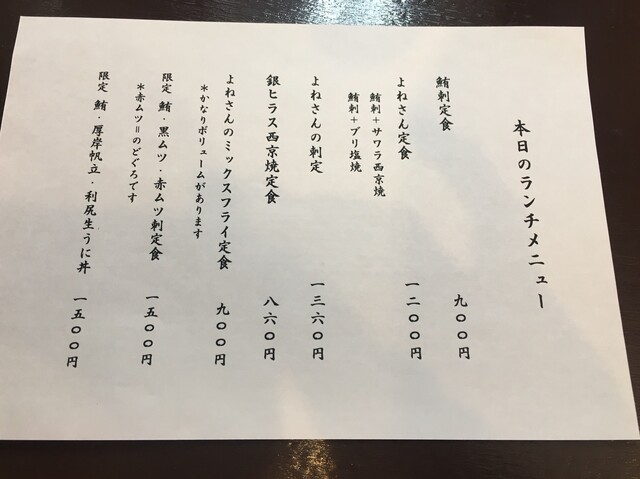 本日のランチメニュー
鮪刺定食 九〇〇円
よねさん定食 一二〇〇円
鮪刺+サワラ西京焼
鮪刺+ブリ塩焼
よねさんの刺定 一三六〇円
銀ヒラス西京焼定食 八六〇円
よねさんのミックスフライ定食 九〇〇円
*かなりボリュームがあります
限定 鮪・黒ムツ・赤ムツ刺定食 一五〇〇円
*赤ムツ=のどぐろです
限定 鮪・厚岸帆立・利尻生うに丼 一五〇〇円